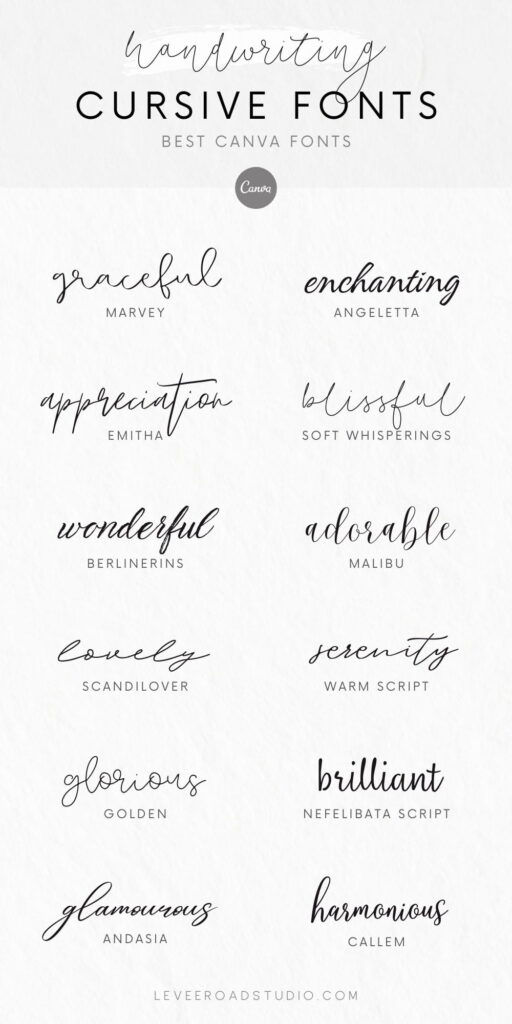 handwriting
CURSIVE FONTS
BEST CANVA FONTS
Canva
graceful
MARVEY
enchanting
ANGELETTA
appreciation
EMITHA
blissful
SOFT WHISPERINGS
wonderful
BERLINERINS
adorable
MALIBU
lovely
SCANDILOVER
serenity
WARM SCRIPT
glorious
GOLDEN
brilliant
NEFELIBATA SCRIPT
glamourous
ANDASIA
harmonious
CALLEM
LEVEEROADSTUDIO.COM